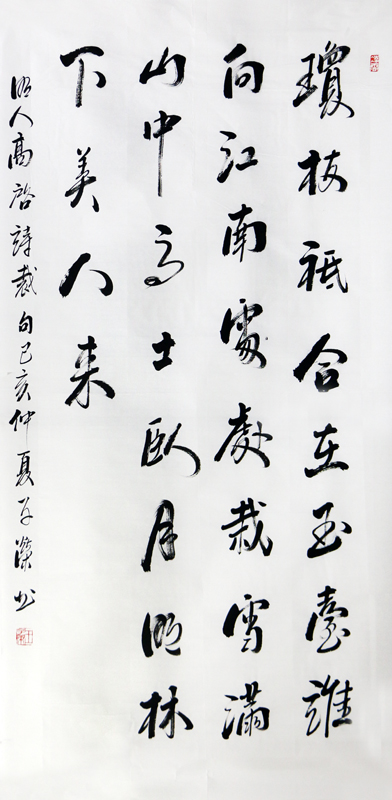 瓊枝祗合在玉臺誰
向江南處處栽雪滿
山中高士臥月明林
下美人来
明人高啓詩裁句己亥仲夏书